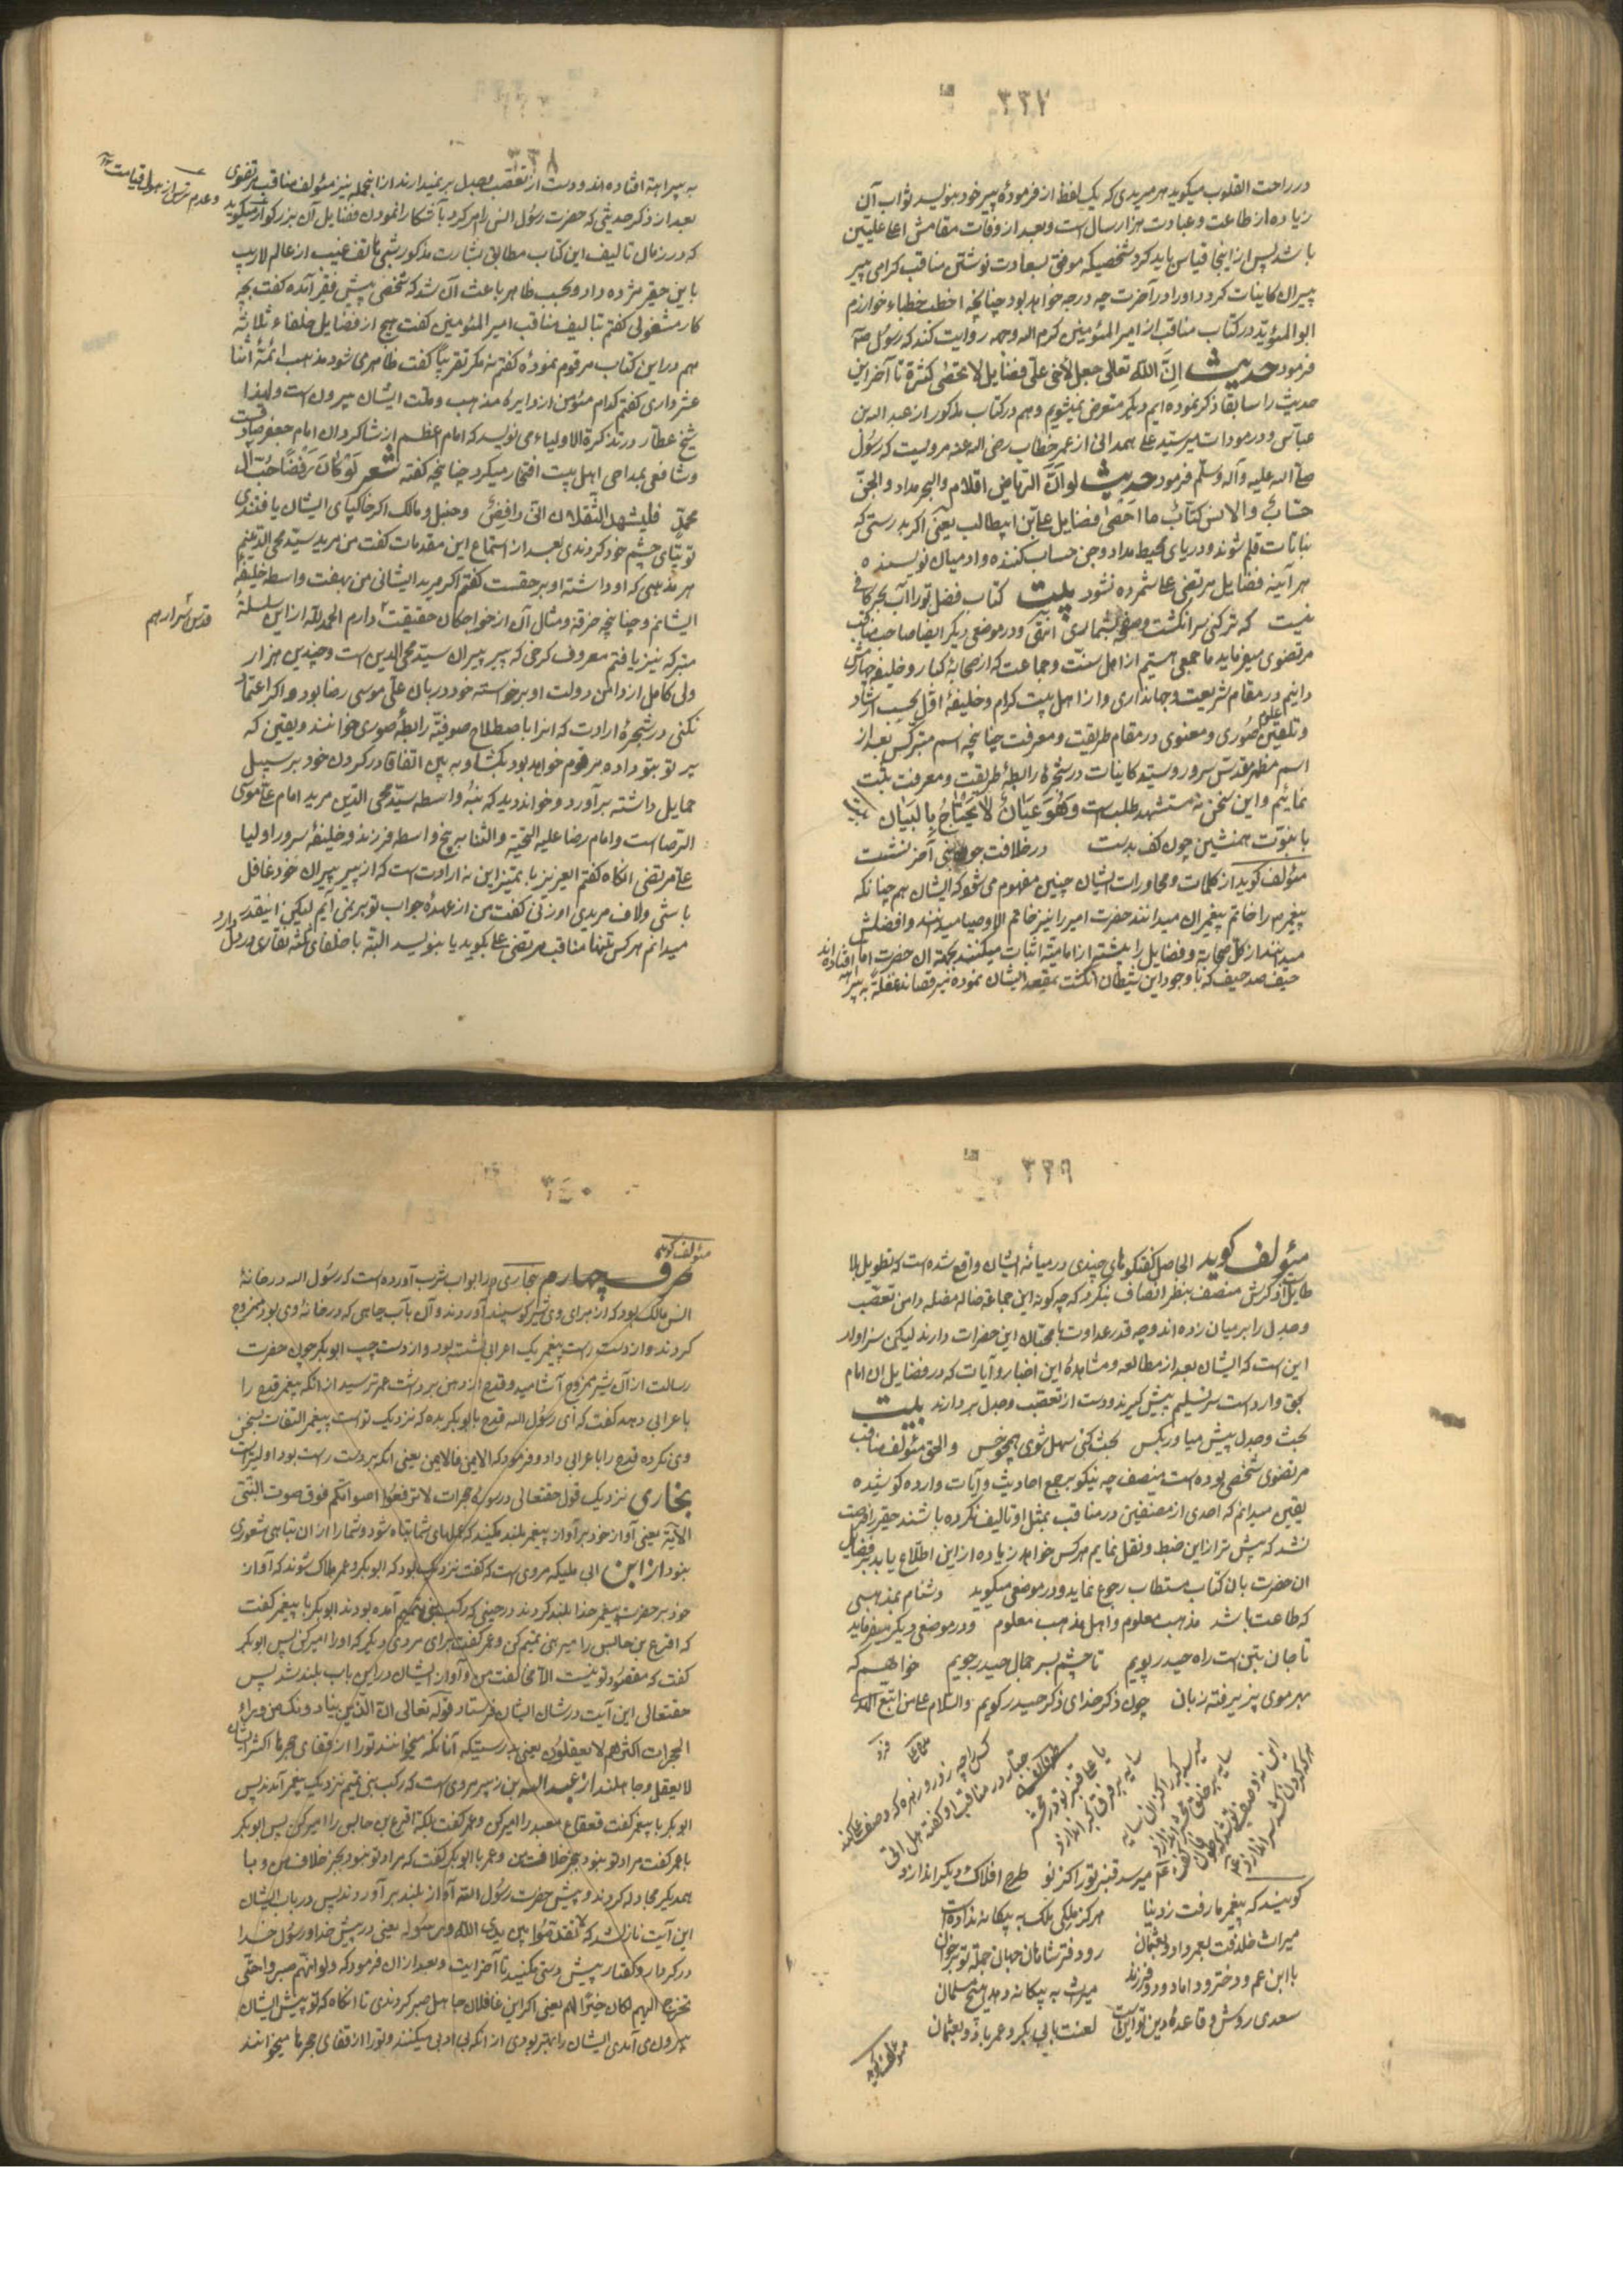 ۳۳۷
در راحت القلوب میگوید هر مریدی که یک لفظ از فرمودهٔ پیر خود بنویسد ثواب آن
زیاده از طاعت و عبادت هزار سال است و بعد از وفات مقامش اعلا علیین
باشد پس از اینجا قیاس باید کرد شخصیکه موفق بسعادت نوشتن مناقب گرامی پیر
پیران کاینات گردد او را در آخرت چه درجه خواهد بود چنانچه اخطب خطباء خوارزم
ابو المؤید در کتاب مناقب از امیر المؤمنین کرم الله وجهه روایت کند که رسول صلعم
فرمود حدیث اِنَّ اللّٰه تعالی جعل لأخی علی فضایل لا تحصی کثرة تا آخر این
حدیث را سابقا ذکر نموده ایم دیگر متعرض نمیشویم و هم در کتاب مذکور از عبد الله بن
عباس و در مودات میر سید علی همدانی از عمر خطاب رضی الله عنه مرویست که رسول
صلی الله علیه وآله وسلم فرمود حدیث لو اَنَّ الریاض اقلام والبحر مداد والجن
حسّابٌ والانس کتّابٌ ما احصی فضایل علی بن ابیطالب یعنی اگر بدرستی که
نباتات قلم شوند و دریای محیط مداد و جن حساب کننده و ادمیان نویسنده
هر آینه فضایل مرتضی علی شمرده نشود بیت کتاب فضل تو را آب بحر کافی
نیست که تر کنی سر انگشت و صفحه بشماری انتهی و در موضعی دیگر ایضا صاحب مناقب
مرتضوی میفرماید ما جمعی هستیم از اهل سنّت و جماعت که از صحابهٔ کبار و خلیفهٔ چهارمش
دانیم در مقام شریعت و جانداری و از اهل بیت کرام و خلیفهٔ اوّل بحسب ارشاد
و تلقین علوم صُوری و معنوی در مقام طریقت و معرفت چنانچه اسم متبرکش بعد از
اسم مظهر مقدس سرور و سید کاینات در شجرهٔ رابطهٔ طریقت و معرفت ثبت
نمائیم و این سخن نه مستشهد طلب است وَهُوَ عیَانٌ لَا یَحْتَاجُ بِالبَیَان
با نبوّت همنشین چون کف بدست در خلافت جو نبی آخر نشست
مئولف گوید از کلمات و محاورات ایشان چنین مفهوم می شود که ایشان هم چنانکه
پیغمبر را خاتم پیغمبران میدانند حضرت امیر را نیز خاتم الاوصیا میدانند و افضلش
میدانند از کل صحابه و فضایل را بیشتر از امامیّه اثبات میکنند بجهة آن حضرت اما افتاده اند
حیف صد حیف که با وجود این شیطان انگشت بمقعد ایشان نموده میرقصاند غفلةً به بیر
۳۳۸
به بیراهه افتاده اند و دست از تعصّب و جدل بر نمیدارند از انجمله نیز مئولف مناقب مرتضوی
بعد از ذکر حدیثی که حضرت رسول انس را امر کرد بآشکارا نمودن فضایل آن بزرگوار میگوید
و عدم ترس از هول قیامت
که در زمان تالیف این کتاب مطابق بشارت مذکور شبی هاتف غیب از عالم لاریب
باین حقیر مژده داد و بحسب ظاهر باعث آن شد که شخصی پیش فقیر آمده گفت بچه
کار مشغولی گفتم بتالیف مناقب امیر المئومنین گفت هیچ از فضایل خلفاء ثلاثه
هم در این کتاب مرقوم نمودهٔ گفتم نه مگر تقریباً گفت ظاهری شود مذهب ائمهٔ اثنا
عشر داری گفتم کدام مئومن از دایرهٔ مذهب و ملت ایشان بیرون است و لهذا
شیخ عطّار در تذکرة الاولیاء می نویسد که امام اعظم از شاگردان امام جعفر صادقست
و شافعی بمداحی اهل بیت افتخار میکرد چنانچه گفته شعر لَوْ کَانَ رَفْضًا حُبُّ ال
محمدٍ فلیشهد الثقلان انی رافضیٌ و حنبل و مالک اگر خاکپای ایشان یافتندی
توتیای چشم خود کردندی بعد از استماع این مقدمات گفت من مرید سیّد محی الدینم
هر مذهبی که او داشته او بر حقست گفتم اگر مرید ایشانی من بهفت واسطه خلیفهٔ
ایشانم و چنانچه خرقه و مثال آن از خواجگان حقیقت دارم الحمد للّٰه از این سلسلهٔ
قدس اسرارهم
متبرکه نیز یافتم معروف کرخی که پیر پیران سیّد محی الدین است و چندین هزار
ولی کامل از دامن دولت او برخواسته خود دربان علی موسی رضا بود و اگر اعتماد
نکنی در شجرهٔ ارادت که انرا باصطلاح صوفیّه رابطهٔ صوری خوانند و یقین که
پیر تو بتو داده مرقوم خواهد بود بگشا و به بین اتفاقا در گردن خود بر سبیل
حمایل داشته برآورد و خواند دید که بنهُ واسطه سیّد محی الدّین مرید امام علی موسی
الرضا است و امام رضا علیه التحیّة والثنا به پنج واسطه فرزند و خلیفهٔ سرور اولیا
علی مرتضی انگاه گفتم ایعزیز با تمیز این نه ارادت است که از پیر پیران خود غافل
باشی و لاف مریدی او زنی گفت من از عهدهٔ جواب تو بر نمی آیم لیکن اینقدر
میدانم هر کس تنها مناقب مرتضی علی بگوید یا بنویسد البته با خلفای ثلثه نقاری در دل دارد
۳۳۹
مئولف گوید الحاصل گفتگوهای چندی در میانهٔ ایشان واقع شده است که تطویل بلا
طایل از ذکرش منصف بنظر انصاف بنگرد که چه گونه این جماعة ضاله مضله دامن تعصّب
و جدل را بر میان زده اند و چه قدر عداوت با محبّان این حضرات دارند لیکن سزاوار
این است که ایشان بعد از مطالعه و مشاهدهٔ این اخبار و آیات که در فضایل ان امام
بحق وارد است سر تسلیم پیش گیرند و دست از تعصّب و جدل بردارند بیت
بحث و جدل پیش میاور بکس بحث کنی سهل شوی همچو خس و الحق مئولف مناقب
مرتضوی شخصی بوده است منصف چه نیکو بجمع احادیث و آیات وارده کوشیده
یقین میدانم که احدی از مصنفین در مناقب بمثل او تالیف نکرده باشند حقیر را فرصت
نشد که بیش تر از این ضبط و نقل نمایم هر کس خواهد زیاده از این اطّلاع یابد بر فضایل
ان حضرت بان کتاب مستطاب رجوع نماید و در موضعی میگوید دشنام بمذهبی
که طاعت باشد مذهب معلوم و اهل مذهب معلوم و در موضعی دیگر میفرماید
تا جان بتن است راه حیدر پویم تا چشم بسر جمال حیدر جویم خواهم که
بهر موی پذیرفته زبان چون ذکر خدای ذکر حیدر گویم والسلام علی من اتبع الهدی
کس را چه زور و زهره که وصف علی کند
جبّار در مناقب او گفته هل اتی
یا علی قنبر تو در محشر
سایه بر فرق گر اندازد
میرسد قنبر تو را کز نو طرح افلاک دیگر اندازد
گویند که پیغمبر ما رفت ز دنیا
میراث خلافت بعمر داد و بعثمان رو دفتر شاهان جهان جمله تو برخوان
با ابن عم و دختر و داماد و دو فرزند میراث به بیگانه دهد هیچ مسلمان
سعدی روش و قاعدهٔ دین تو اینست لعنت بابی بکر و عمر باد و بعثمان
۳۴۰
مئولف گوید
طرف چهارم بخاری در ابواب شرب آورده است که رسول الله در خانهٔ
انس مالک بود که از برای وی شیر گوسپند آوردند و آن بآب چاهی که در خانهٔ وی بود ممزوج
کردند و از دست راست پیغمبر یک اعرابی نشسته بود و از دست چپ ابوبکر چون حضرت
رسالت از آن شیر ممزوج آشامید و قدح از دهن برداشت عمر ترسید از انکه پیغمبر قدح را
باعرابی دهد گفت که ای رسول الله قدح بابوبکر بده که نزدیک تو است پیغمبر التفات بسخن
وی نکرده قدح را باعرابی داد و فرمود که الایمن فالایمن یعنی انکه بر دست راست بود اولیتر است
بخاری نزدیک قول حقتعالی در سورهٔ حجرات لا ترفعوا اصواتکم فوق صوت النبی
الآیة یعنی آواز خود بر آواز پیغمبر بلند مکنید که عملهای شما تباه شود و شما را از ان تباهی شعوری
نبود از ابن ابی ملیکه مروی است که گفت نزدیک بود که ابوبکر و عمر هلاک شوند که آواز
خود بر حضرت پیغمبر خدا بلند کردند در حینی که رکب بنی تمیم آمده بودند ابوبکر با پیغمبر گفت
که اقرع بن حابس را میر بنی تمیم کن و عمر گفت برای مردی دیگر که او را امیر کن پس ابوبکر
گفت که مقصود تو نیست الا مخالفت من و آواز ایشان در این باب بلند شد پس
حقتعالی این آیت در شان ایشان فرستاد قوله تعالی انّ الّذین ینادونک من وراء
الحجرات اکثرهم لا یعقلون یعنی بدرستیکه آنانکه میخوانند تو را از قفای حجرها اکثر ایشان
لا یعقل و جاهلند از عبد الله بن زبیر مروی است که رکب بنی تمیم نزدیک پیغمبر آمدند پس
ابوبکر با پیغمبر گفت قعقاع معبد را امیر کن و عمر گفت بلکه اقرع بن حابس را امیر کن پس ابوبکر
با عمر گفت مراد تو نبود بجز خلاف من و عمر با ابوبکر گفت که مراد تو نبود بجز خلاف من و با
همدیگر مجادله کردند و پیش حضرت رسول الله آواز بلند برآوردند پس در باب ایشان
این آیت نازل شد که لا تقدّموا بین یدی الله و رسوله یعنی در پیش خدا و رسول خدا
در کردار و گفتار پیش دستی مکنید تا آخر ایت و بعد از ان فرمود که ولو انّهم صبروا حتّی
تخرج الیهم لکان خیرا لهم یعنی اگر این غافلان جاهل صبر کردندی تا انگاه که تو پیش ایشان
بیرون می آمدی ایشان را بهتر بودی از انکه بی ادبی میکنند و تو را از قفای حجرها میخوانند